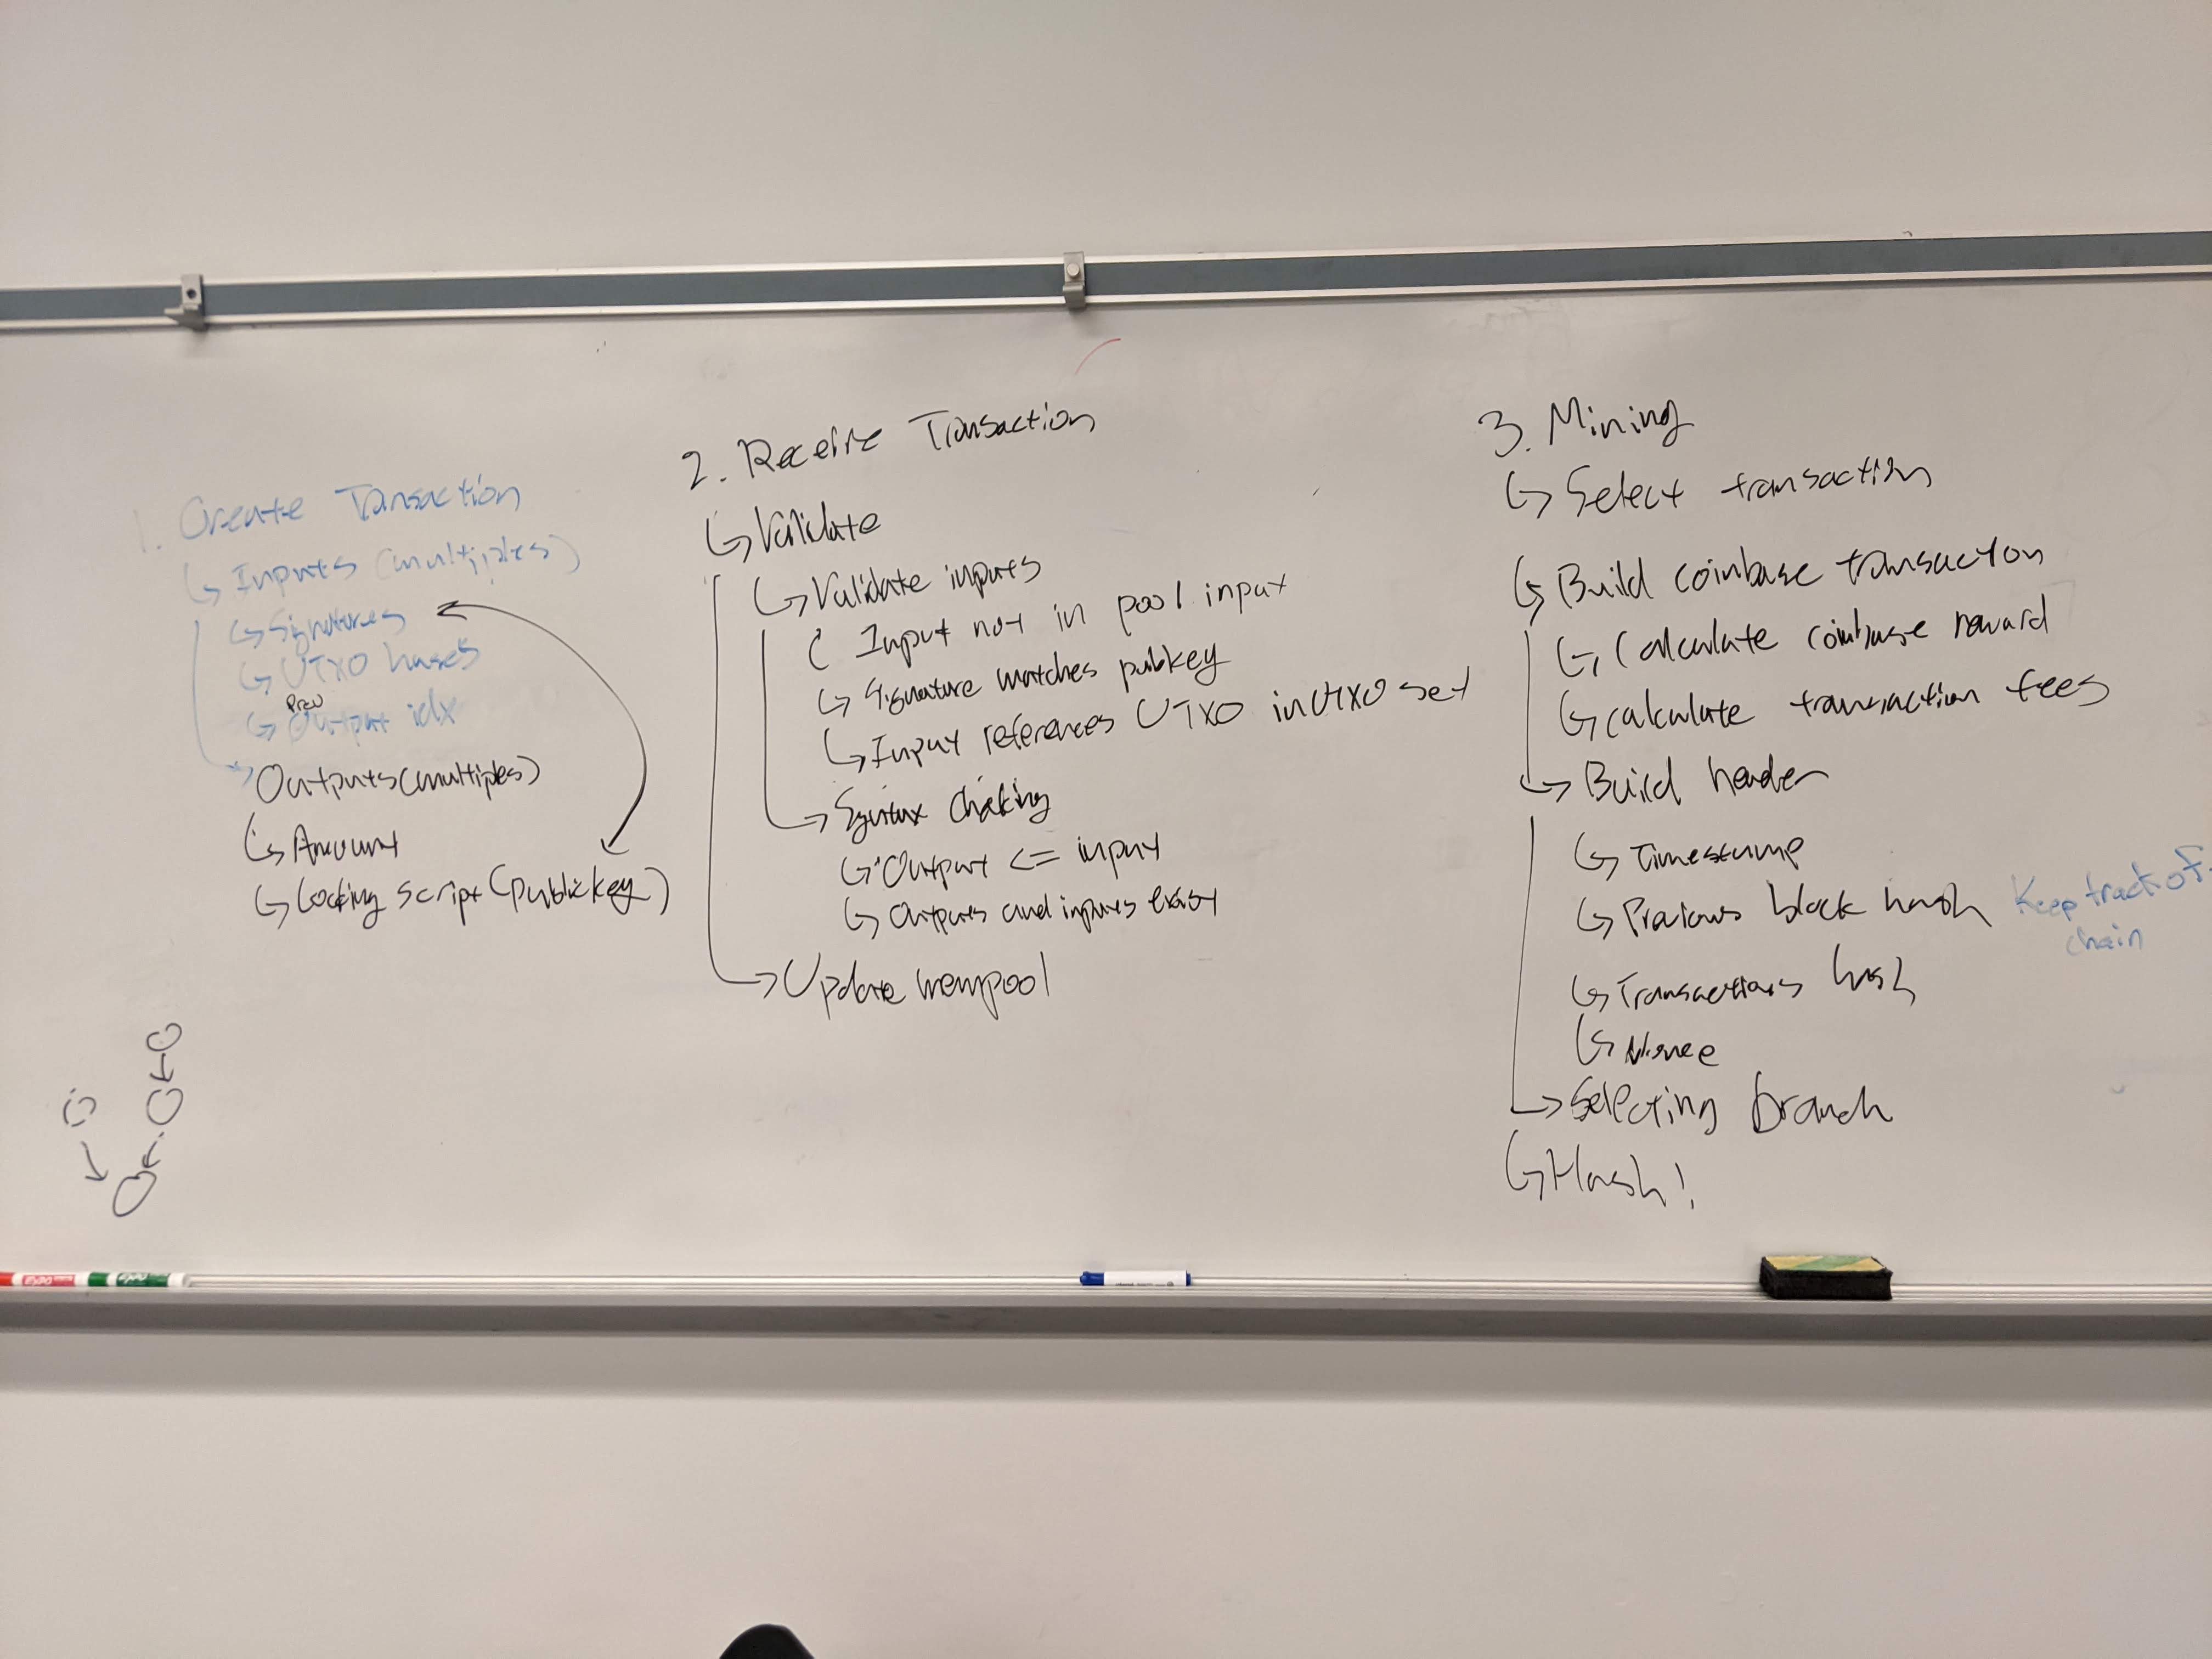 1. Create Transaction
Inputs (multiples)
Signatures
UTXO hases
Prev
Output idx
Outputs (multiples)
Amount
Locking script (public key)
2. Receive Transaction
Validate
Validate inputs
Input not in pool input
Signature matches pubkey
Input references UTXO in UTXO set
Syntax checking
Output <= input
Outputs and inputs exist
Update mempool
3. Mining
Select transaction
Build coinbase transaction
Calculate coinbase reward
Calculate transaction fees
Build header
Timestamp
Previous block hash Keep track of
chain
Transactions hash
Nonce
Selecting branch
Hash!
EXPO
EXPO